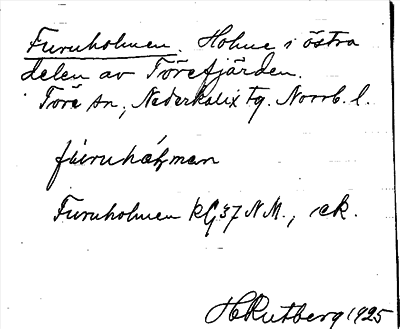 Furuholmen. Holme i östra
delen av Törefjärden.
Töre sn, Nederkalix tg. Norrb. l.
Furuholmen kG 37 N.M., ek.
H Rutberg 1925